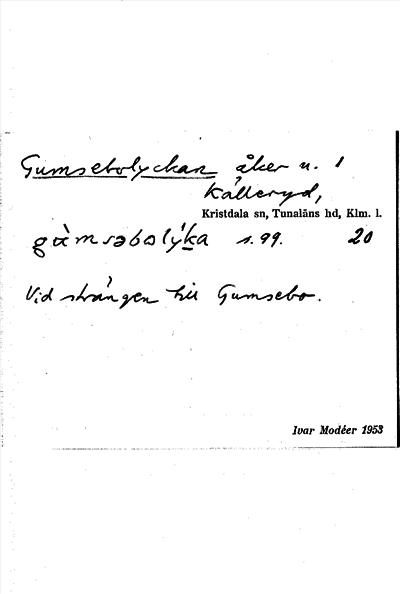 Gumsebolyckan åker u. 1
Källeryd,
Kristdala sn, Tunaläns hd, Klm. l.
gu̇̀msəbolẏ́ka s. 99. 20
Vid stängen till Gumsebo.
Ivar Modéer 1953